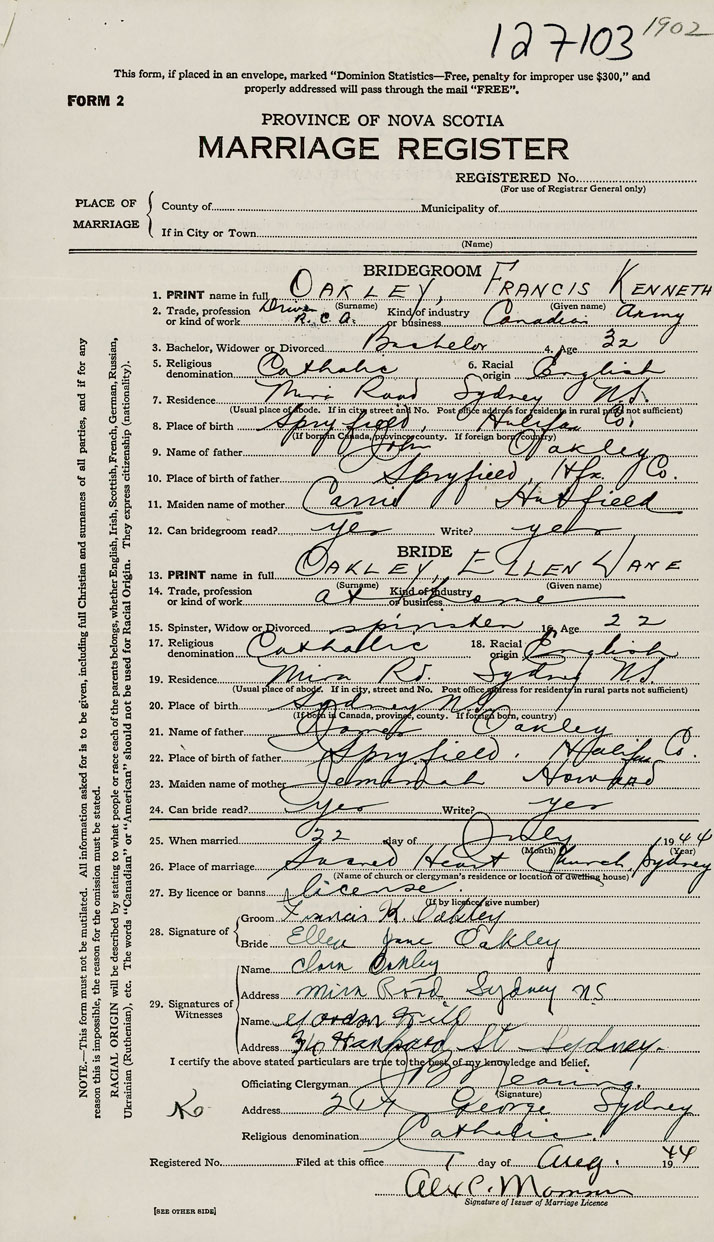 127103 1902
This form, if placed in an envelope, marked "Dominion Statistics—Free, penalty for improper use $300," and
properly addressed will pass through the mail "FREE".
FORM 2
PROVINCE OF NOVA SCOTIA
MARRIAGE REGISTER
REGISTERED No.
(For use of Registrar General only)
PLACE OF MARRIAGE
County of Municipality of
If in City or Town
(Name)
BRIDEGROOM
1. PRINT name in full OAKLEY, FRANCIS KENNETH
(Surname) (Given name)
2. Trade, profession or kind of work Driver R.C.A. Kind of industry or business Canadian Army
3. Bachelor, Widower or Divorced Bachelor 4. Age 32
5. Religious denomination Catholic 6. Racial origin English
7. Residence Mira Road Sydney N.S.
(Usual place of abode. If in city street and No. Post office address for residents in rural parts not sufficient)
8. Place of birth Spryfield, Halifax Co.
(If born in Canada, province, county. If foreign born, country)
9. Name of father John Oakley
10. Place of birth of father Spryfield, Hfx Co.
11. Maiden name of mother Carrie Hatfield
12. Can bridegroom read? yes Write? yes
BRIDE
13. PRINT name in full OAKLEY, ELLEN JANE
(Surname) (Given name)
14. Trade, profession or kind of work at home Kind of industry or business
15. Spinster, Widow or Divorced spinster 16. Age 22
17. Religious denomination Catholic 18. Racial origin English
19. Residence Mira Rd. Sydney NS
(Usual place of abode. If in city, street and No. Post office address for residents in rural parts not sufficient)
20. Place of birth Sydney NS
(If born in Canada, province, county. If foreign born, country)
21. Name of father James Oakley
22. Place of birth of father Spryfield, Halifax Co.
23. Maiden name of mother Jemimah Howard
24. Can bride read? Yes Write? yes
25. When married 22 day of July 1944
(Month) (Year)
26. Place of marriage Sacred Heart Church, Sydney
(Name of church or clergyman's residence or location of dwelling house)
27. By licence or banns license
(If by licence, give number)
28. Signature of
Groom Francis K. Oakley
Bride Ellen Jane Oakley
29. Signatures of Witnesses
Name Clara Oakley
Address Mira Road Sydney NS
Name Gordon
Address Hankard St Sydney.
I certify the above stated particulars are true to the best of my knowledge and belief.
Officiating Clergyman Young.
(Signature)
No
Address 214 George Sydney
Religious denomination Catholic.
Registered No. Filed at this office 1 day of Aug. 1944
Alex C.
Signature of Issuer of Marriage Licence
[SEE OTHER SIDE]
NOTE.—This form must not be mutilated. All information asked for is to be given, including full Christian and surnames of all parties, and if for any
reason this is impossible, the reason for the omission must be stated.
RACIAL ORIGIN will be described by stating to what people or race each of the parents belongs, whether English, Irish, Scottish, French, German, Russian,
Ukrainian (Ruthenian), etc. The words "Canadian" or "American" should not be used for Racial Origin. They express citizenship (nationality).